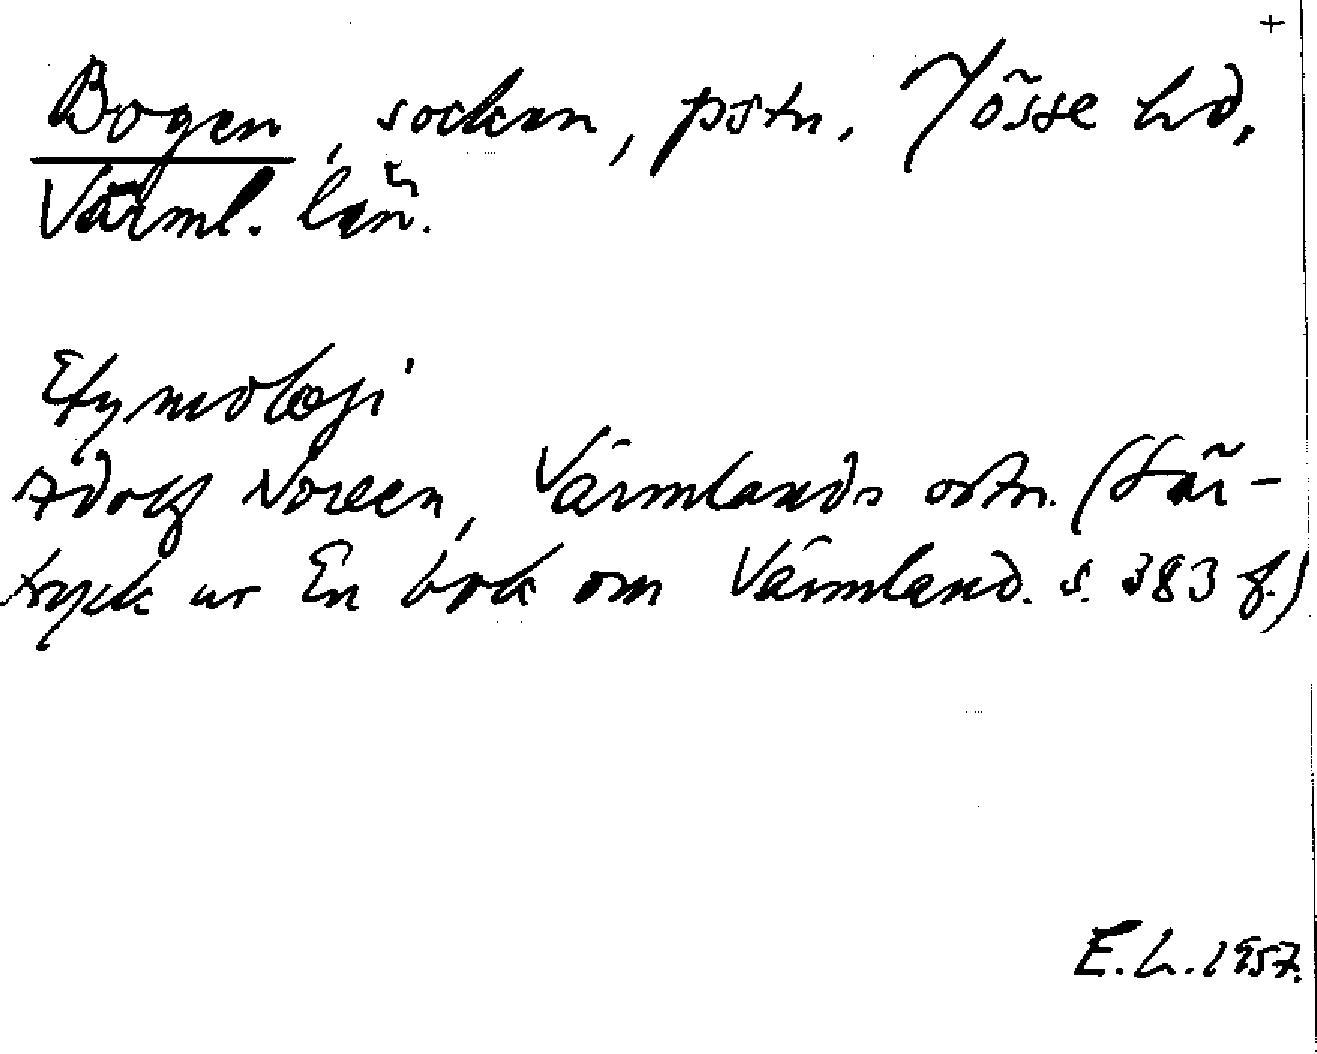 +
Bogen, socken, pstn. Jösse hd,
Värml. län.
Etymologi
Adolf Noreen, Värmlands ortn. (Sär-
tryck ur En bok om Värmland. s. 383 f.)
E. L. 1957.